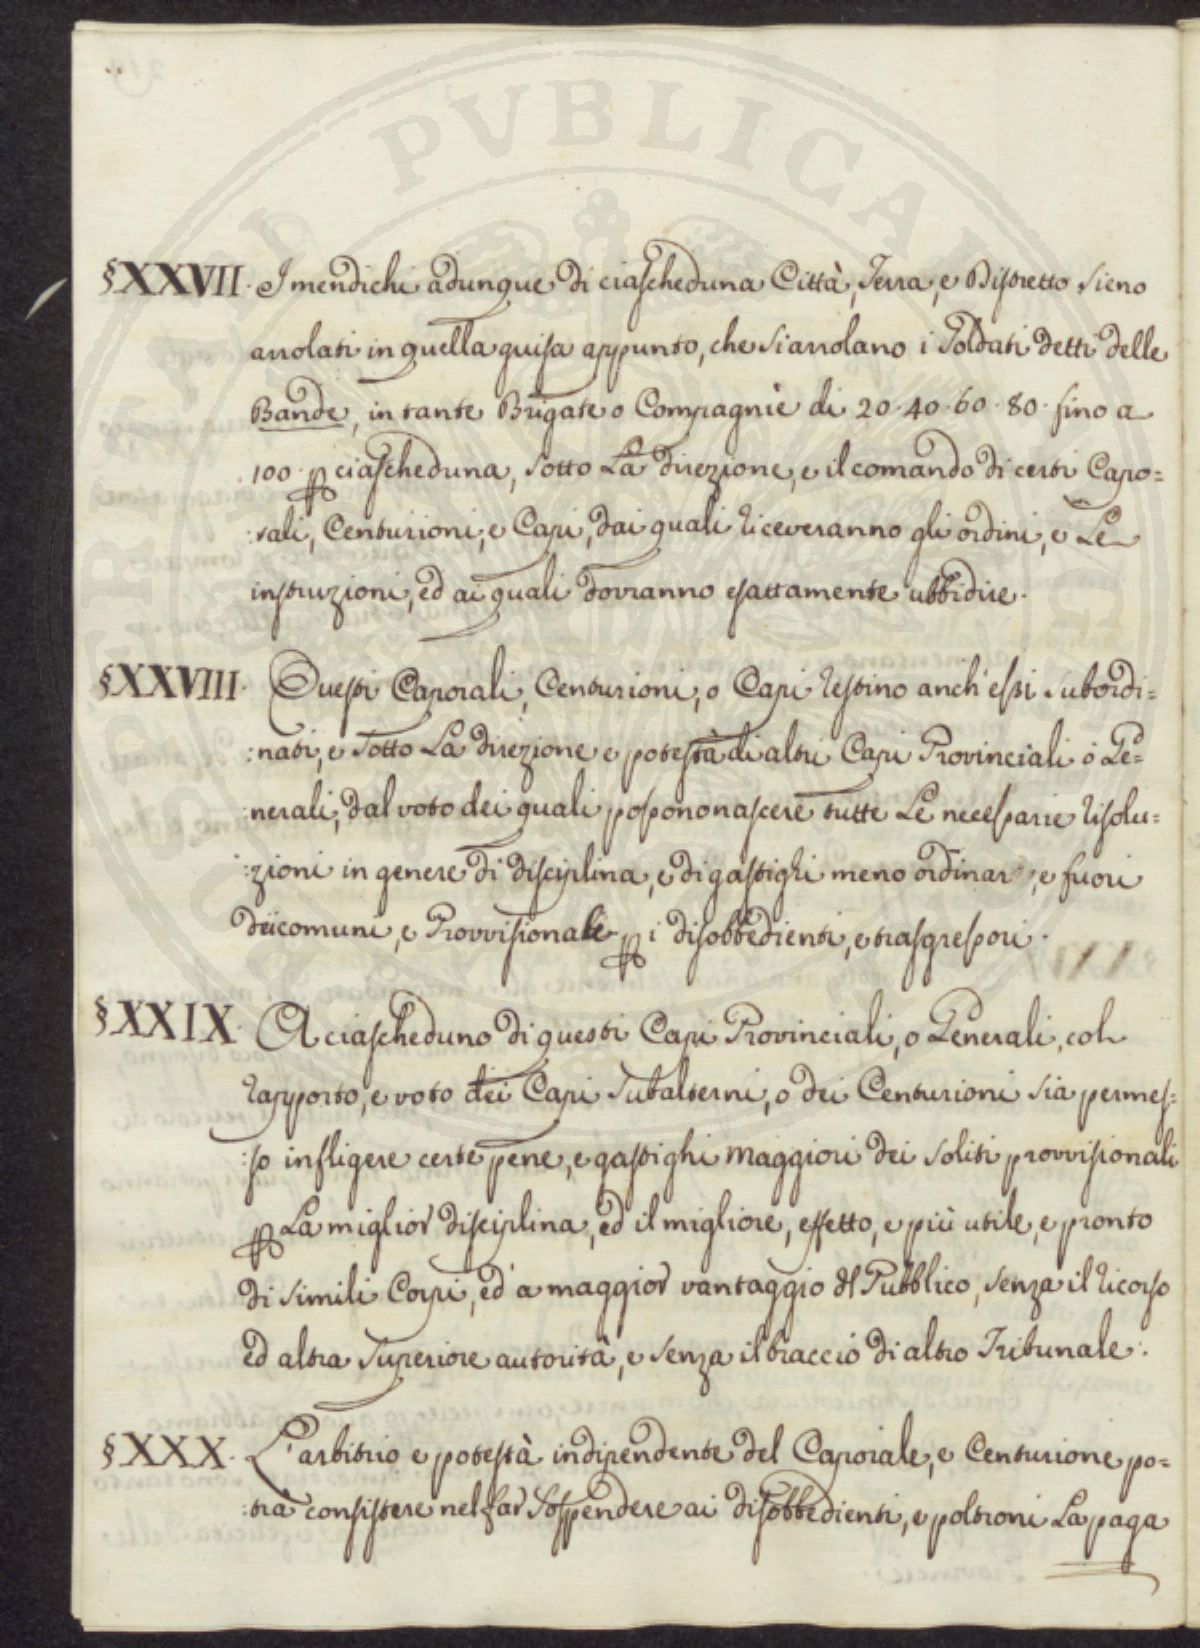 PVBLICAE
§XXVII. I mendichi adunque di ciascheduna Città, Terra, e Distretto sieno
arrolati in quella guisa appunto, che si arrolano i Soldati detti delle
Bande, in tante Brigate o Compagnie di 20. 40. 60. 80. fino a
100. p ciascheduna, sotto La direzione, e il comando di certi Capo=
:rali, Centurioni, e Capi, dai quali riceveranno gli ordini, e Le
instruzioni, ed ai quali dovranno esattamente ubbidire.
§XXVIII. Questi Caporali, Centurioni, o Capi restino anch'essi subordi=
:nati, e sotto La direzione e potestà di altri Capi Provinciali o Ge=
:nerali, dal voto dei quali possono nascere tutte Le necessarie risolu=
:zioni in genere di disciplina, e di gastighi meno ordinarj, e fuori
dei comuni, e Provvisionali p i disobbedienti, e trasgressori.
§XXIX. A ciascheduno di questi Capi Provinciali, o Generali, col
rapporto, e voto dei Capi Subalterni, o dei Centurioni sia permes=
:so infligere certe pene, e gastighi maggiori dei soliti provvisionali
p La miglior disciplina, ed il migliore, effetto, e più utile, e pronto
di simili Corpi, ed a maggior vantaggio dl Pubblico, senza il ricorso
ed altra Superiore autorità, e senza il braccio di altro Tribunale.
§XXX. L'arbitrio e potestà indipendente del Caporale, e Centurione po=
:trà consistere nel far sospendere ai disobbedienti, e poltroni La paga